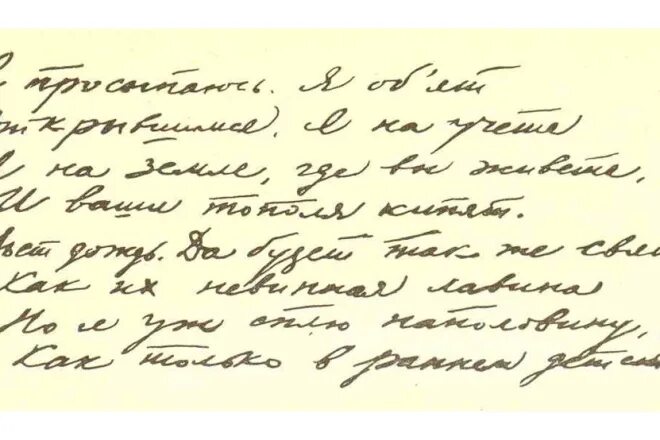 Я просыпаюсь. Я об'ят
ткрывшимся. Я на учете
Я на земле, где вы живете,
И ваши тополя кипят.
ьет дождь. Да будет так же свя
Как их невинная лавина
Но я уж сплю наполовину,
Как только в раннем детс